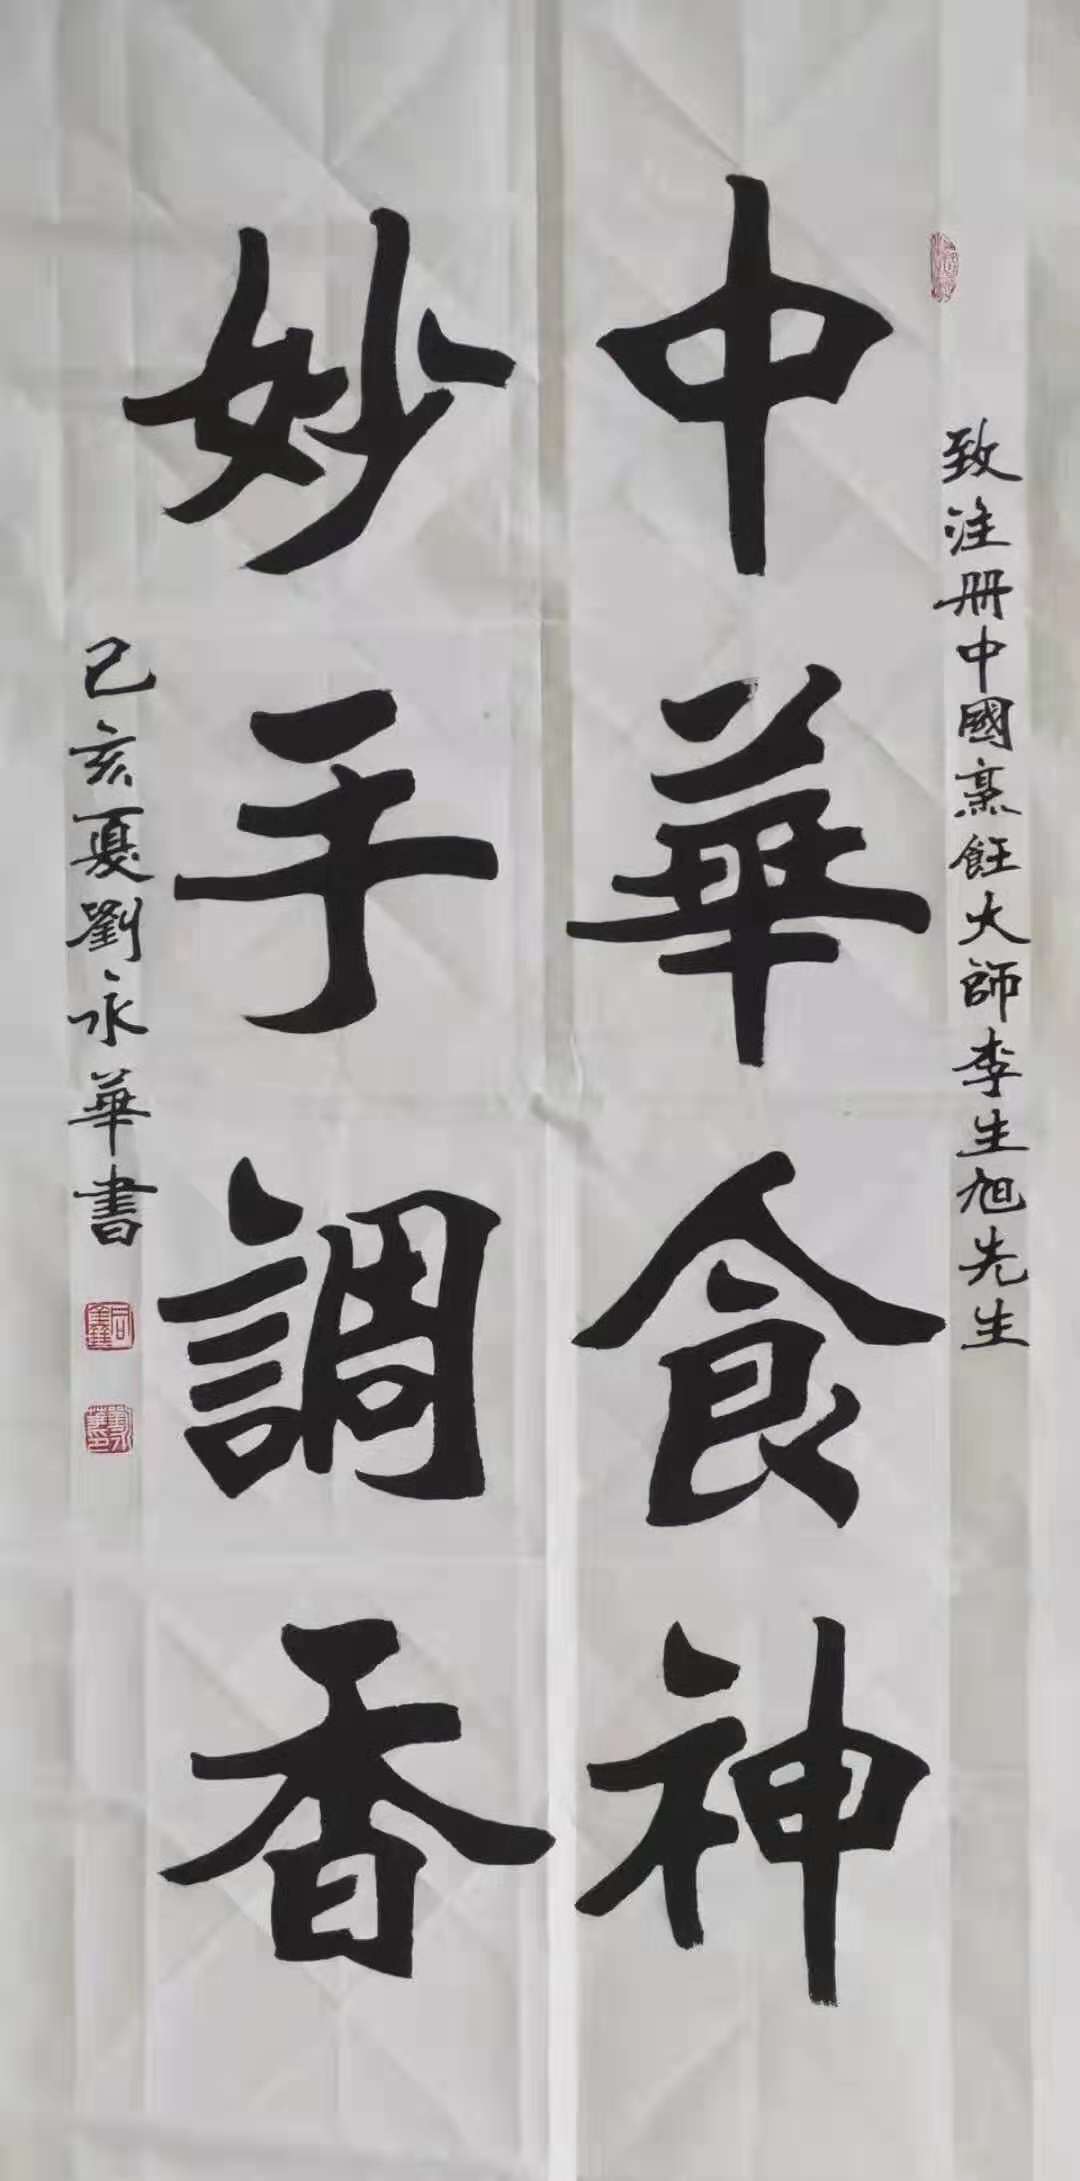 致注册中國烹飪大師李生旭先生
中華食神
妙手調香
己亥夏劉永華書